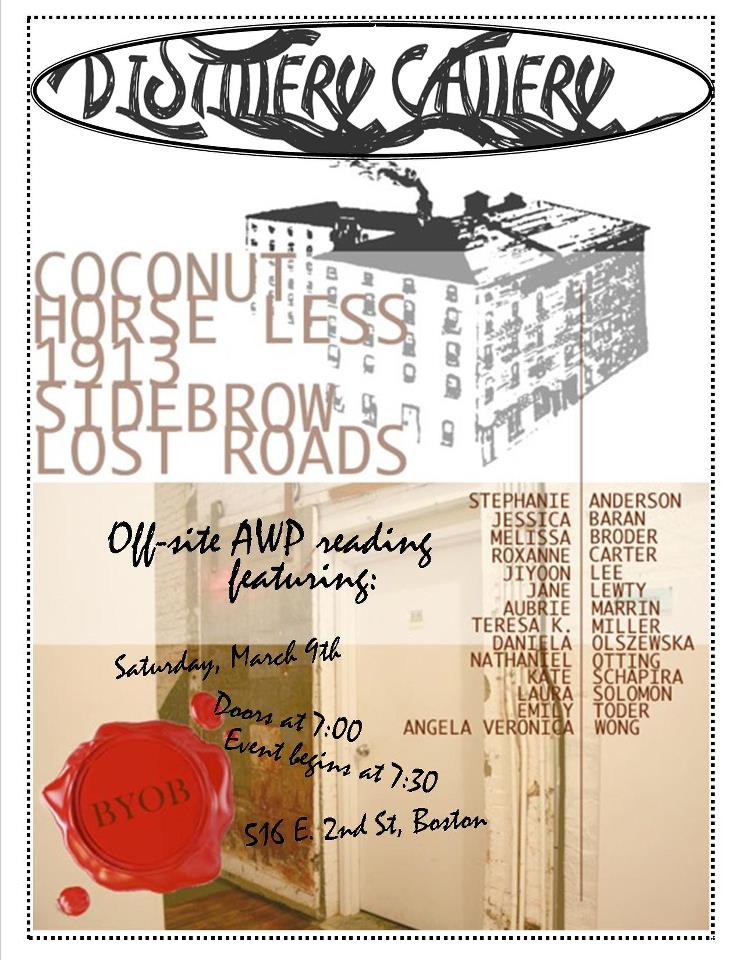 DISTILLERY GALLERY
COCONUT
HORSE LESS
1913
SIDEBROW
LOST ROADS
Off-site AWP reading
featuring:
STEPHANIE ANDERSON
JESSICA BARAN
MELISSA BRODER
ROXANNE CARTER
JIYOON LEE
JANE LEWTY
AUBRIE MARRIN
TERESA K. MILLER
DANIELA OLSZEWSKA
NATHANIEL OTTING
KATE SCHAPIRA
LAURA SOLOMON
EMILY TODER
ANGELA VERONICA WONG
Saturday, March 9th
Doors at 7:00
Event begins at 7:30
516 E. 2nd St, Boston
BYOB